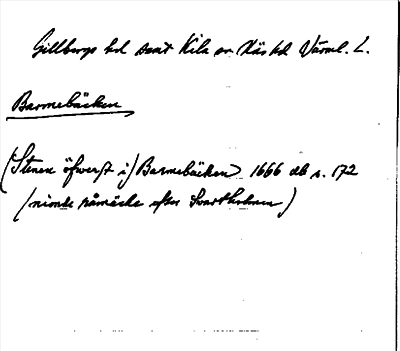 Gillbergs hd samt Kila sn Näs hd Värml. L.
Barmebäcken
(Stenen öfwerst i) Barmebäcken 1666 db s. 172
(nionde råmärke efter Svartkärnen)